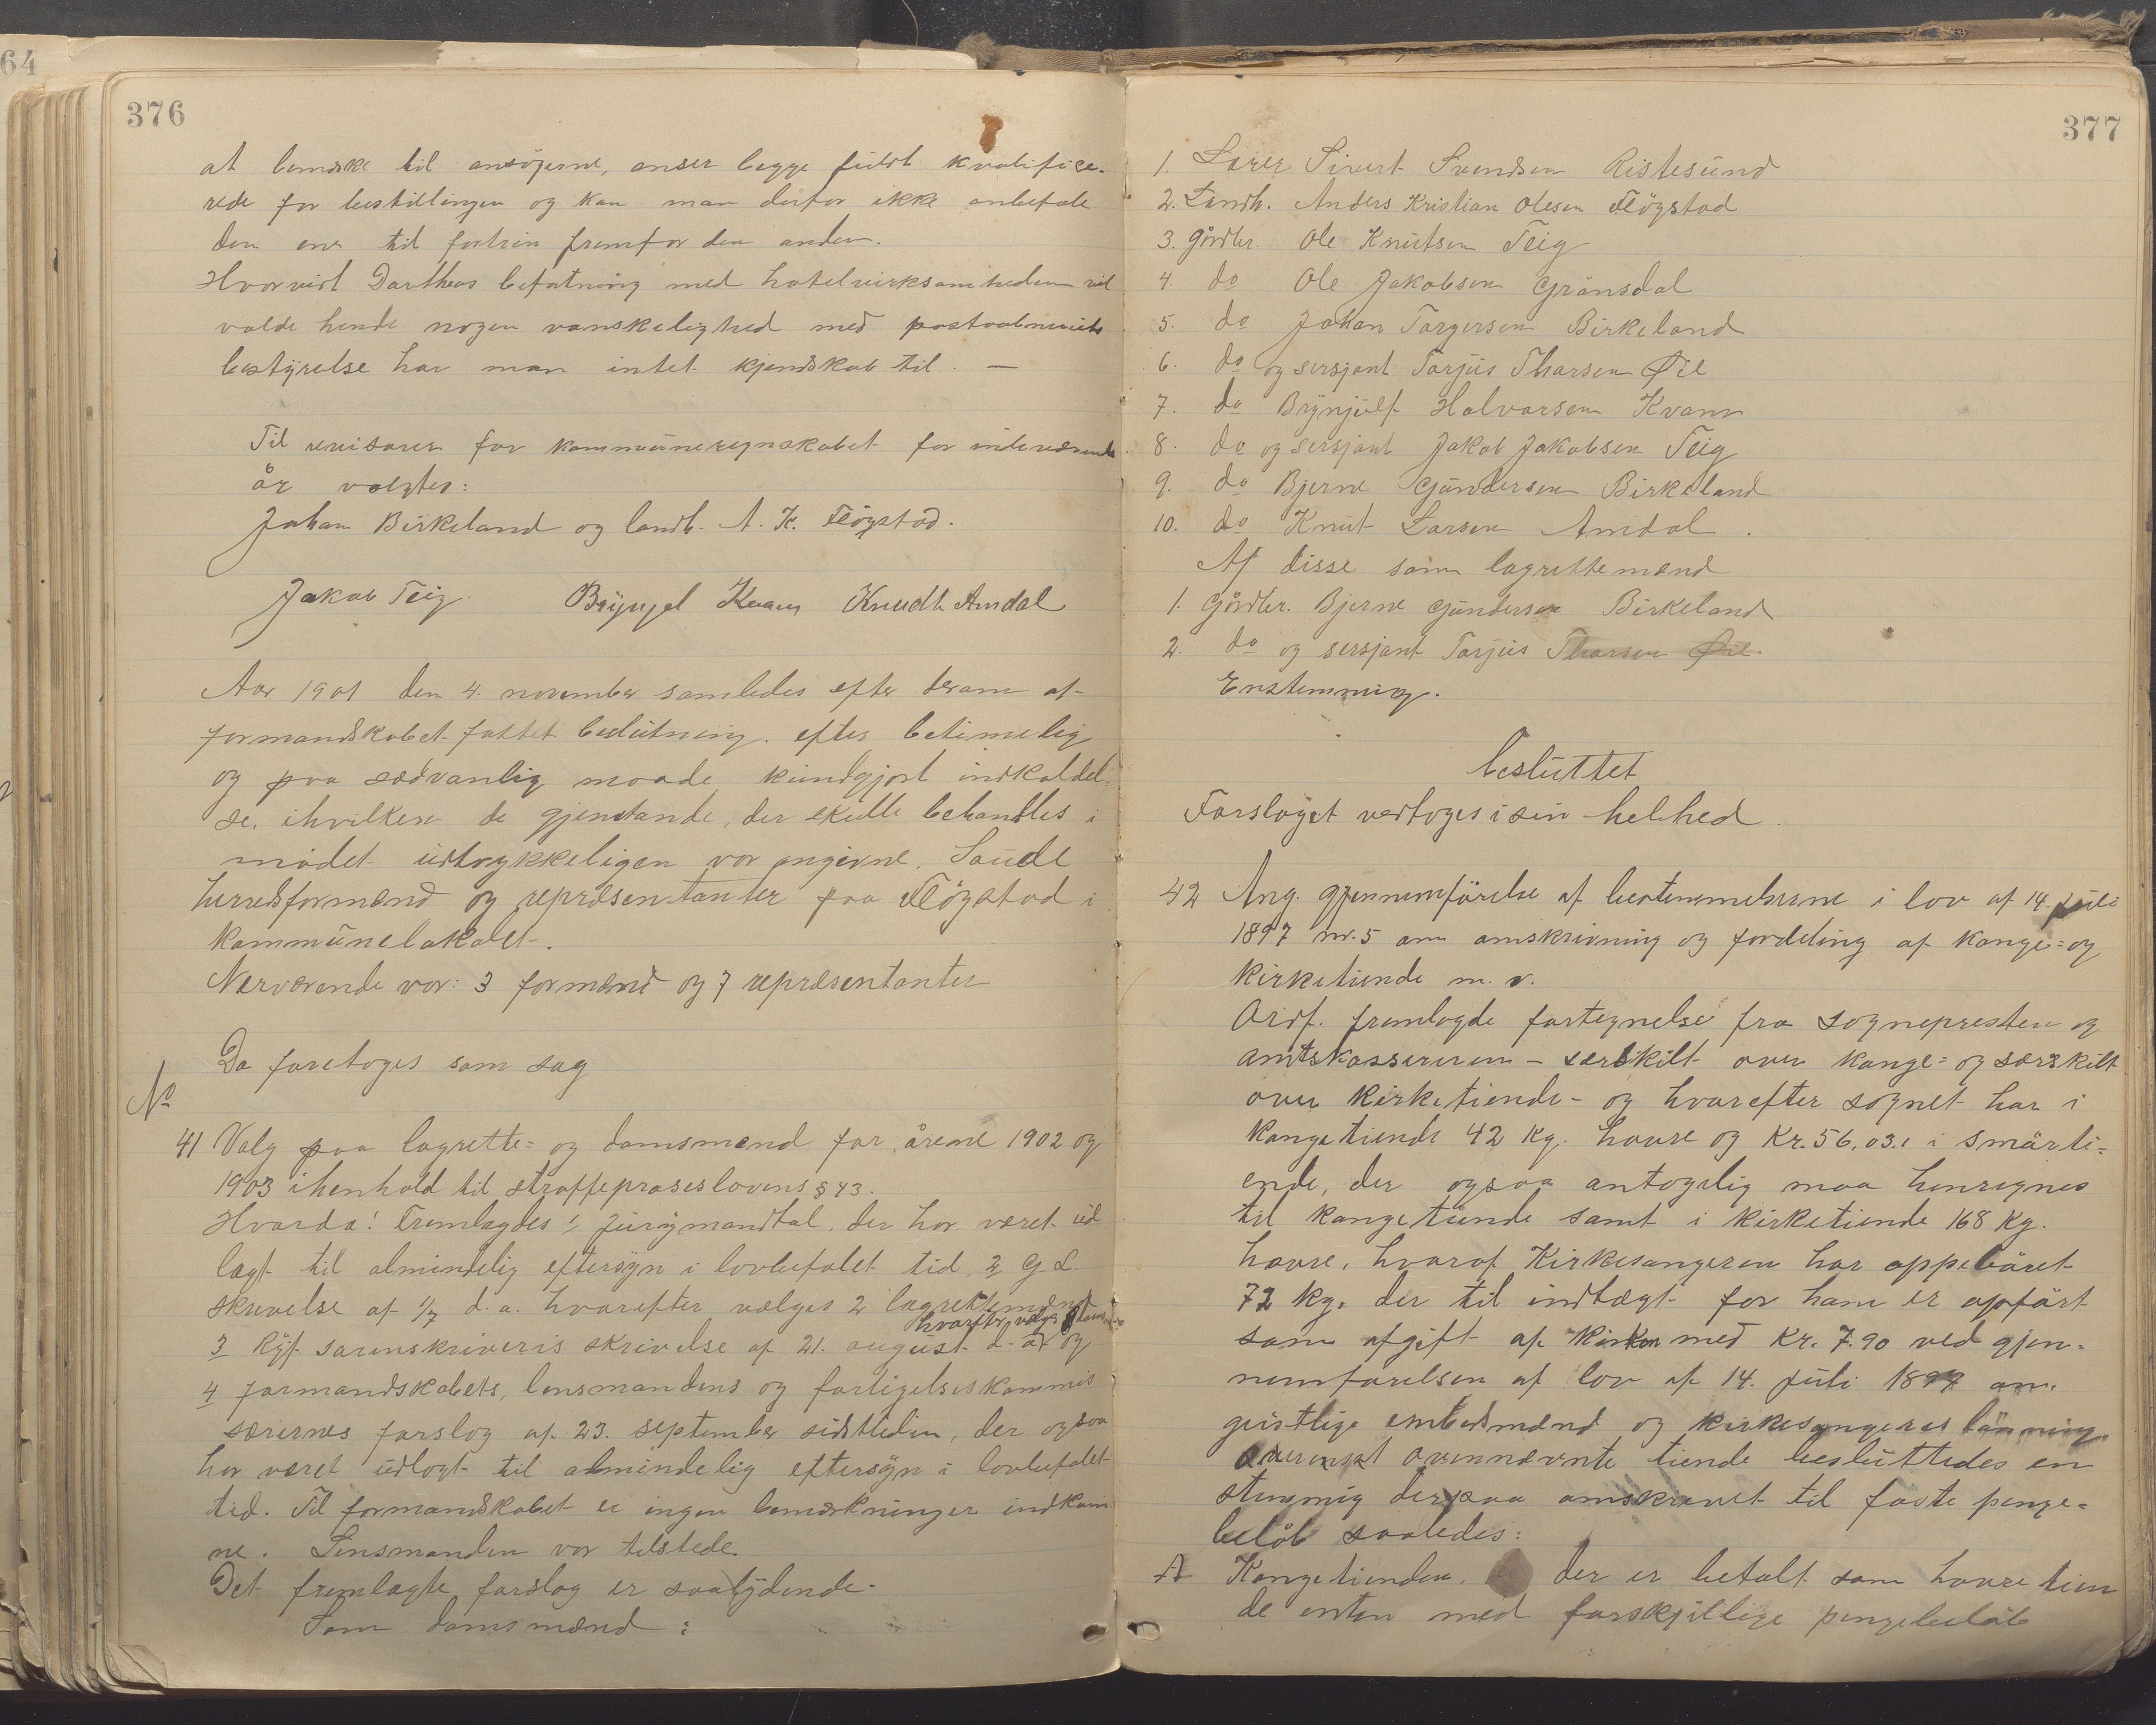 64
376
at bemærke til ansøgerne, anser begge fuldt kvalifice-
rede for bestillingen og kan man derfor ikke anbefale
den ene til fortrin fremfor den anden.
Hvorvidt Dortheas befatning med hotelvirksomheden vil
volde hende nogen vanskelighed med postaabneriets
bestyrelse har man intet kjendskab til. —
Til revisorer for kommuneregnskabet for indeværende
år valgtes:
Johan Birkeland og landh. A. K. Fløgstad.
Jakob Teig. Brynjel Kvam Knudt Amdal
Aar 1901 den 4. november samledes efter derom af
formandskabet fattet beslutning, efter betimelig
og paa sædvanlig maade kundgjort indkaldel-
se, ihvilken de gjenstande, der skulle behandles i
mødet udtrykkeligen var angivne, Saude
herredsformænd og repræsentanter paa Fløgstad i
kommunelokalet.
Nærværende var: 3 formænd og 7 repræsentanter
Da foretoges som sag
No
41 Valg paa lagrette- og domsmænd for årene 1902 og
1903 ihenhold til straffeproseslovens § 43.
Hvorda! Fremlagdes 1, Jurymandtal, der har været ud
lagt til almindelig eftersyn i lovbefalet tid, 2 G. L.
skrivelse af 1/7 d. a. hvorefter vælges 2 lagrettemænd
hvorefter vælges
3 Ryf. sorenskriveris skrivelse af 21. august d. a. og
4 formandskabets, lensmandens og forligelseskommis
særernes forslag af 23. september sidstleden, der ogsaa
har været udlagt til almindelig eftersyn i lovbefalet
tid. Til formandskabet er ingen bemærkninger indkom
ne. Lensmanden var tilstede.
Det fremlagte forslag er saalydende.
Som domsmænd:
377
1. Lærer Sivert Svendsen Ristesund
2. Landh. Anders Kristian Olesen Fløgstad
3. Gårdbr. Ole Knutsen Teig
4. do Ole Jakobsen Grånsdal
5. do Johan Torgersen Birkeland
6. do og sersjant Torjus Thorsen Øie
7. do Brynjulf Halvorsen Kvam
8. do og sersjant Jakob Jakobsen Teig
9. do Bjerne Gundersen Birkeland
10. do Knut Larsen Amdal.
Af disse som lagrettemænd
1. Gårdbr. Bjerne Gundersen Birkeland
2. do og sersjant Torjus Thorsen Øie.
Enstemmig.
besluttet
Forslaget vedtoges i sin helhed.
42 Ang. gjennemførelse af bestemmelserne i lov af 14. juli
1897 nr. 5 om omskrivning og fordeling af konge- og
kirketiende m. v.
Ordf. fremlagde fortegnelse fra sognepresten og
amtskassereren - særskilt over konge- og særskilt
over kirketiende - og hvorefter sognet har i
kongetiende 42 kg. havre og Kr. 56,03. i småti-
ende, der ogsaa antagelig maa henregnes
til kongetiende samt i kirketiende 168 kg.
havre, hvoraf Kirkesangeren har oppebåret
72 kg. der til indtægt for ham er opført
som afgift af kirken med Kr. 7.90 ved gjen-
nemførelsen af lov af 14. juli 1897 om
geistlige embedsmænd og kirkesangeres lønning
ovennævnte tiende besluttedes en
stemmig derpaa omskrevet til faste penge-
beløb saaledes:
A Kongetienden, der er betalt som havre tien
de enten med forskjellige pengebeløb